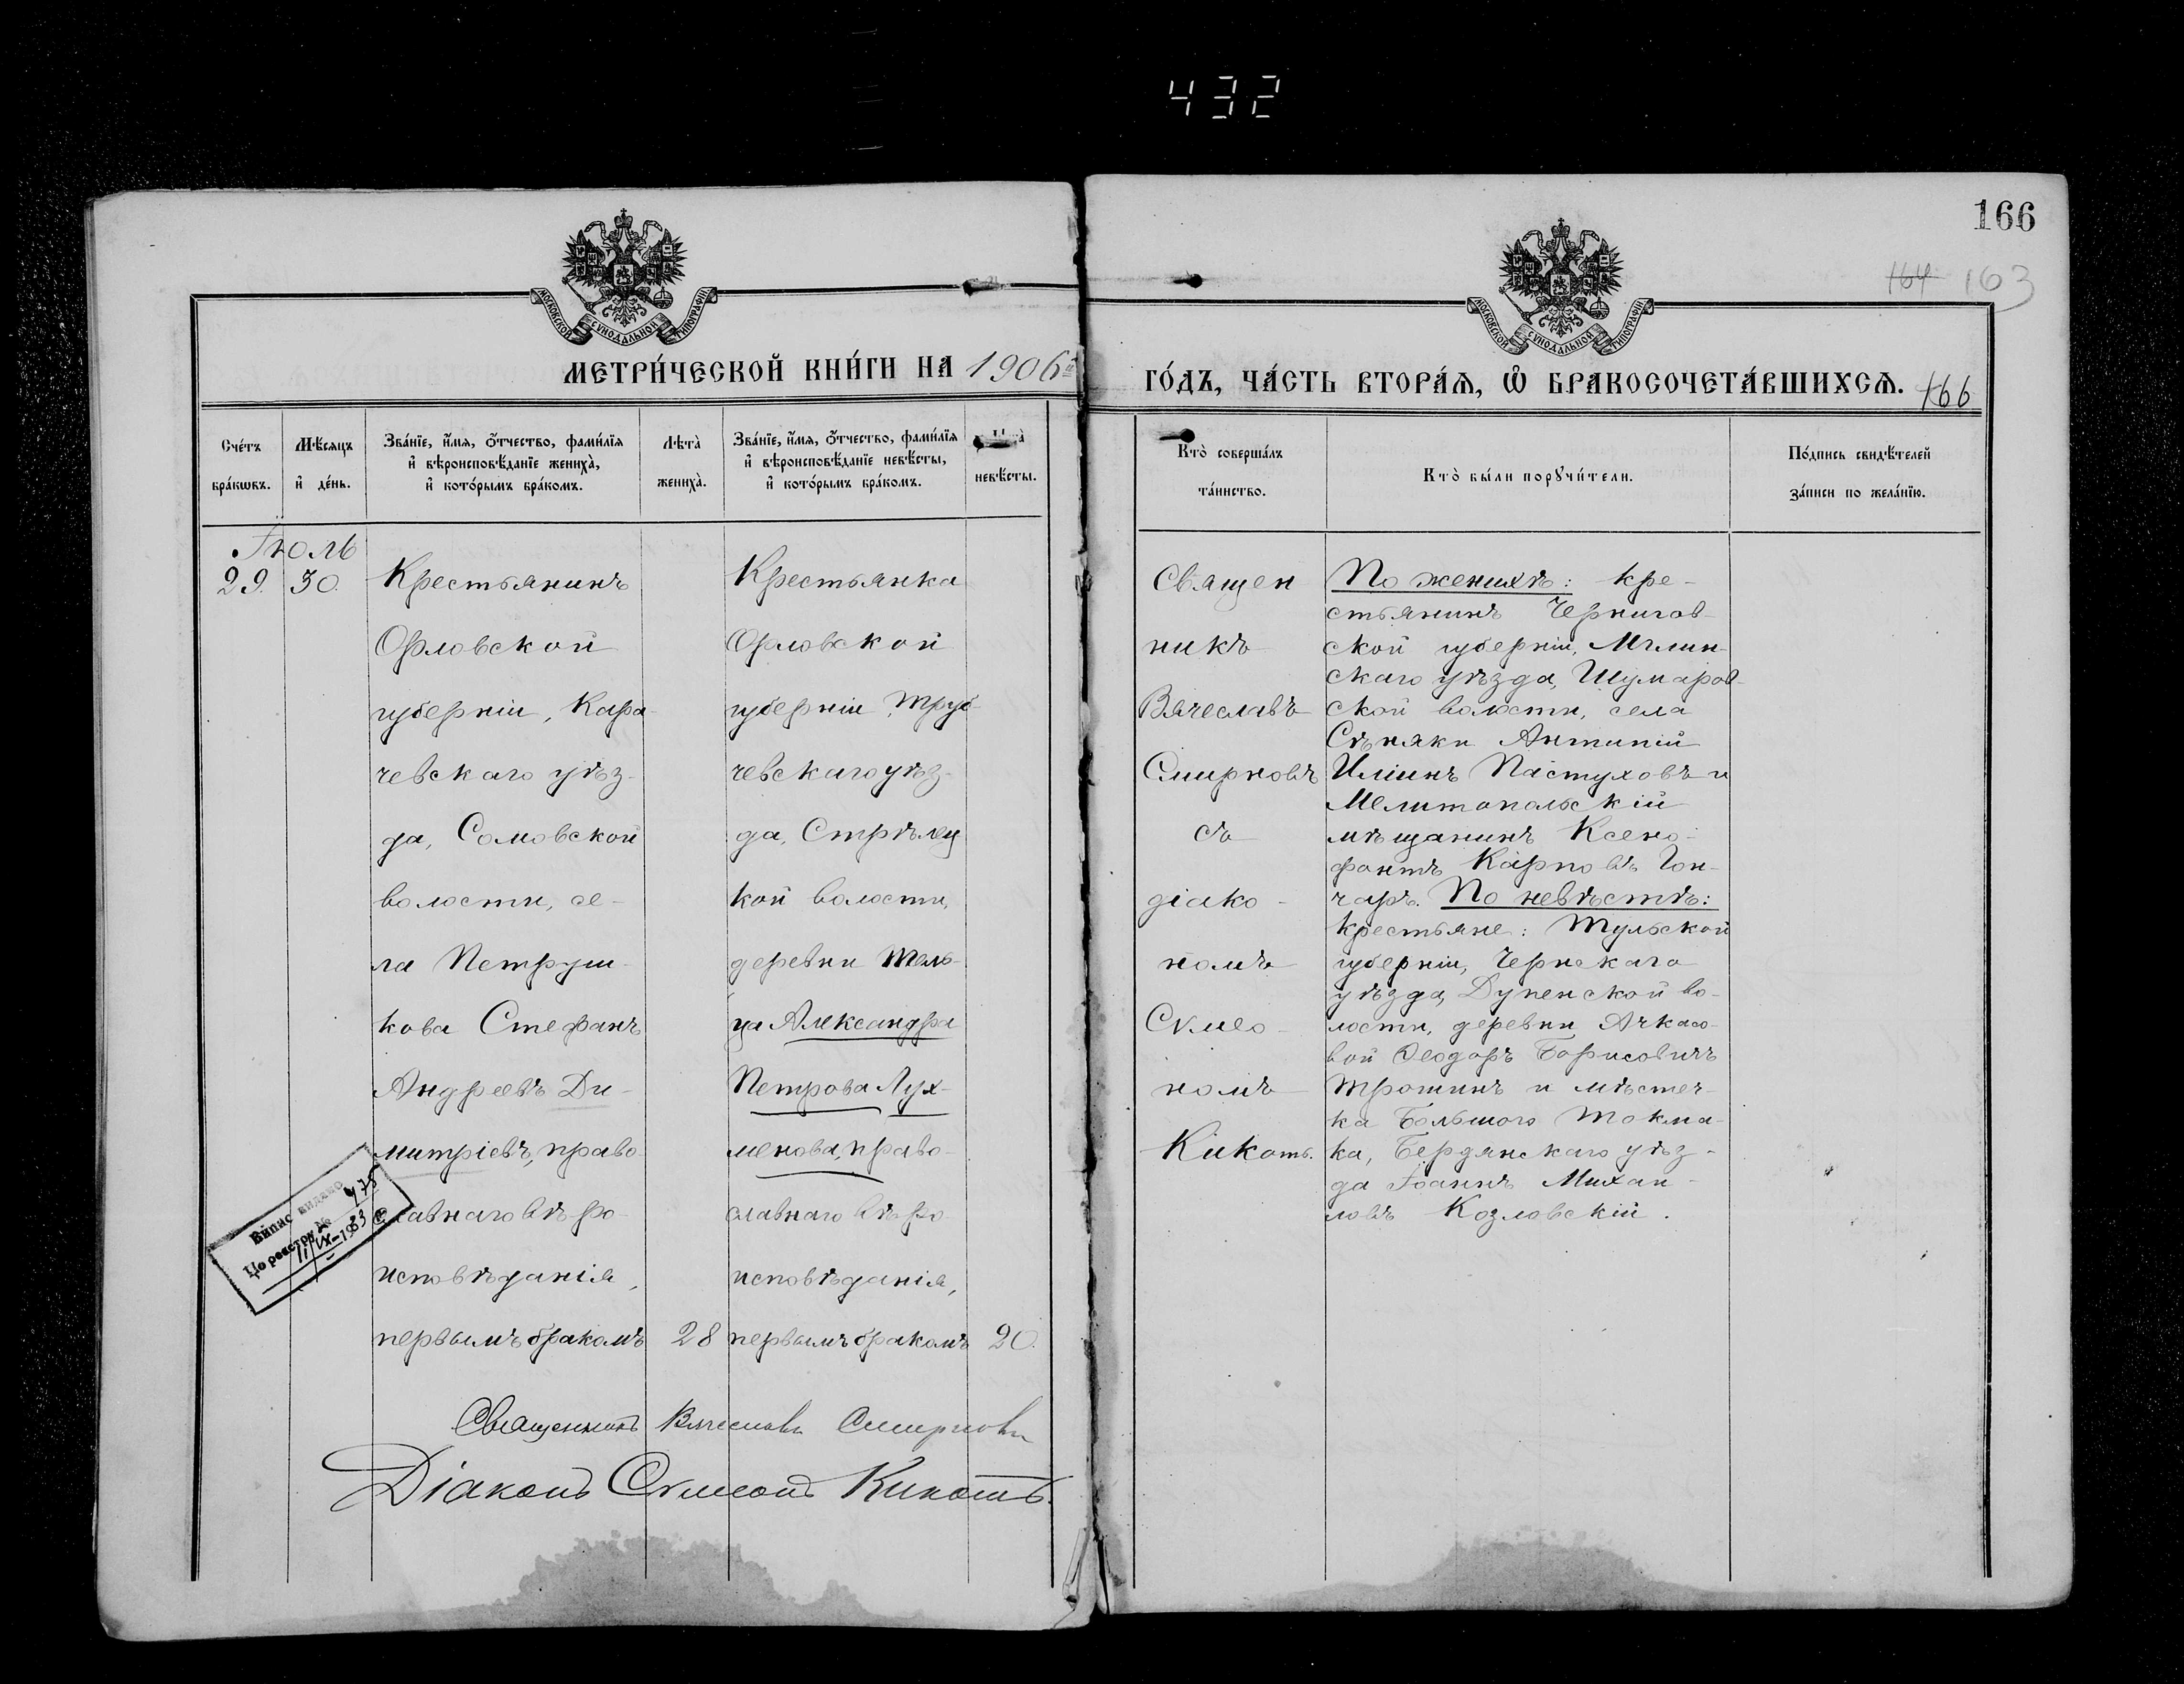 432
166
164 163
МОСКОВСКОЙ СУНОДАЛЬНОЙ ТИПОГРАФІИ
МОСКОВСКОЙ СУНОДАЛЬНОЙ ТИПОГРАФІИ
МЕТРИ́ЧЕСКОЙ КНИ́ГИ НА 1906й
ГО́ДЪ, ЧА́СТЬ ВТОРА́Ѧ, Ѽ БРАКОСОЧЕТА́ВШИХСѦ.
166
Сче́тъ
бра́кѡвъ.
Мѣ́сяцъ
и҆ де́нь.
Зва́нїе, и҆́мѧ, ѻ҆́тчество, фами́лїѧ
и҆ вѣроисповѣ́данїе жениха̀,
и҆ кото́рымъ бра́комъ.
Лѣта̀
жениха̀.
Зва́нїе, и҆́мѧ, ѻ҆́тчество, фами́лїѧ
и҆ вѣроисповѣ́данїе невѣ́сты,
и҆ кото́рымъ бра́комъ.
невѣ́сты.
Кто̀ соверша́лъ
та́инство.
Кто̀ бы́ли порꙋчи́тели.
По́дпись свидѣ́телей
за́писи по жела́нїю.
Іюль
29. 30.
Крестьянинъ
Орловской
губерніи, Кара-
чевскаго уѣз-
да, Сомовской
волости, се-
ла Петруш-
кова Стефанъ
Андреевъ Ди-
митріевъ, право-
славнаго вѣро-
исповѣданія,
первымъ бракомъ
28
Крестьянка
Орловской
губерніи, Труб-
чевскаго уѣз-
да, Стрѣлец
кой волости,
деревни Тель-
ца Александра
Петрова Лух-
менова, право-
славнаго вѣро-
исповѣданія,
первымъ бракомъ
20.
Священ
никъ
Вячеславъ
Смирновъ
съ
діако-
номъ
Сѵмео-
номъ
Кикоть.
По женихѣ: кре-
стьянинъ Чернигов-
ской губерніи, Мглин-
скаго уѣзда, Шумаров-
ской волости, села
Сѣняки Антипій
Иліинъ Пастуховъ и
Мелитопольскій
мѣщанинъ Ксено-
фонтъ Карповъ Гон-
чаръ. По невѣстѣ:
крестьяне: Тульской
губерніи, Чернскаго
уѣзда, Дупенской во-
лости, деревни Ачкасо-
вой Ѳеодоръ Борисовичъ
Трошинъ и мѣстеч-
ка Большого Токма-
ка, Бердянскаго уѣз-
да Іоаннъ Михаи-
ловъ Козловскій.
Випис видано
По реестру № 478
11/IX-1933 р.
Священникъ Вячеславъ Смирновъ
Діаконъ Сѵмеонъ Кикоть.